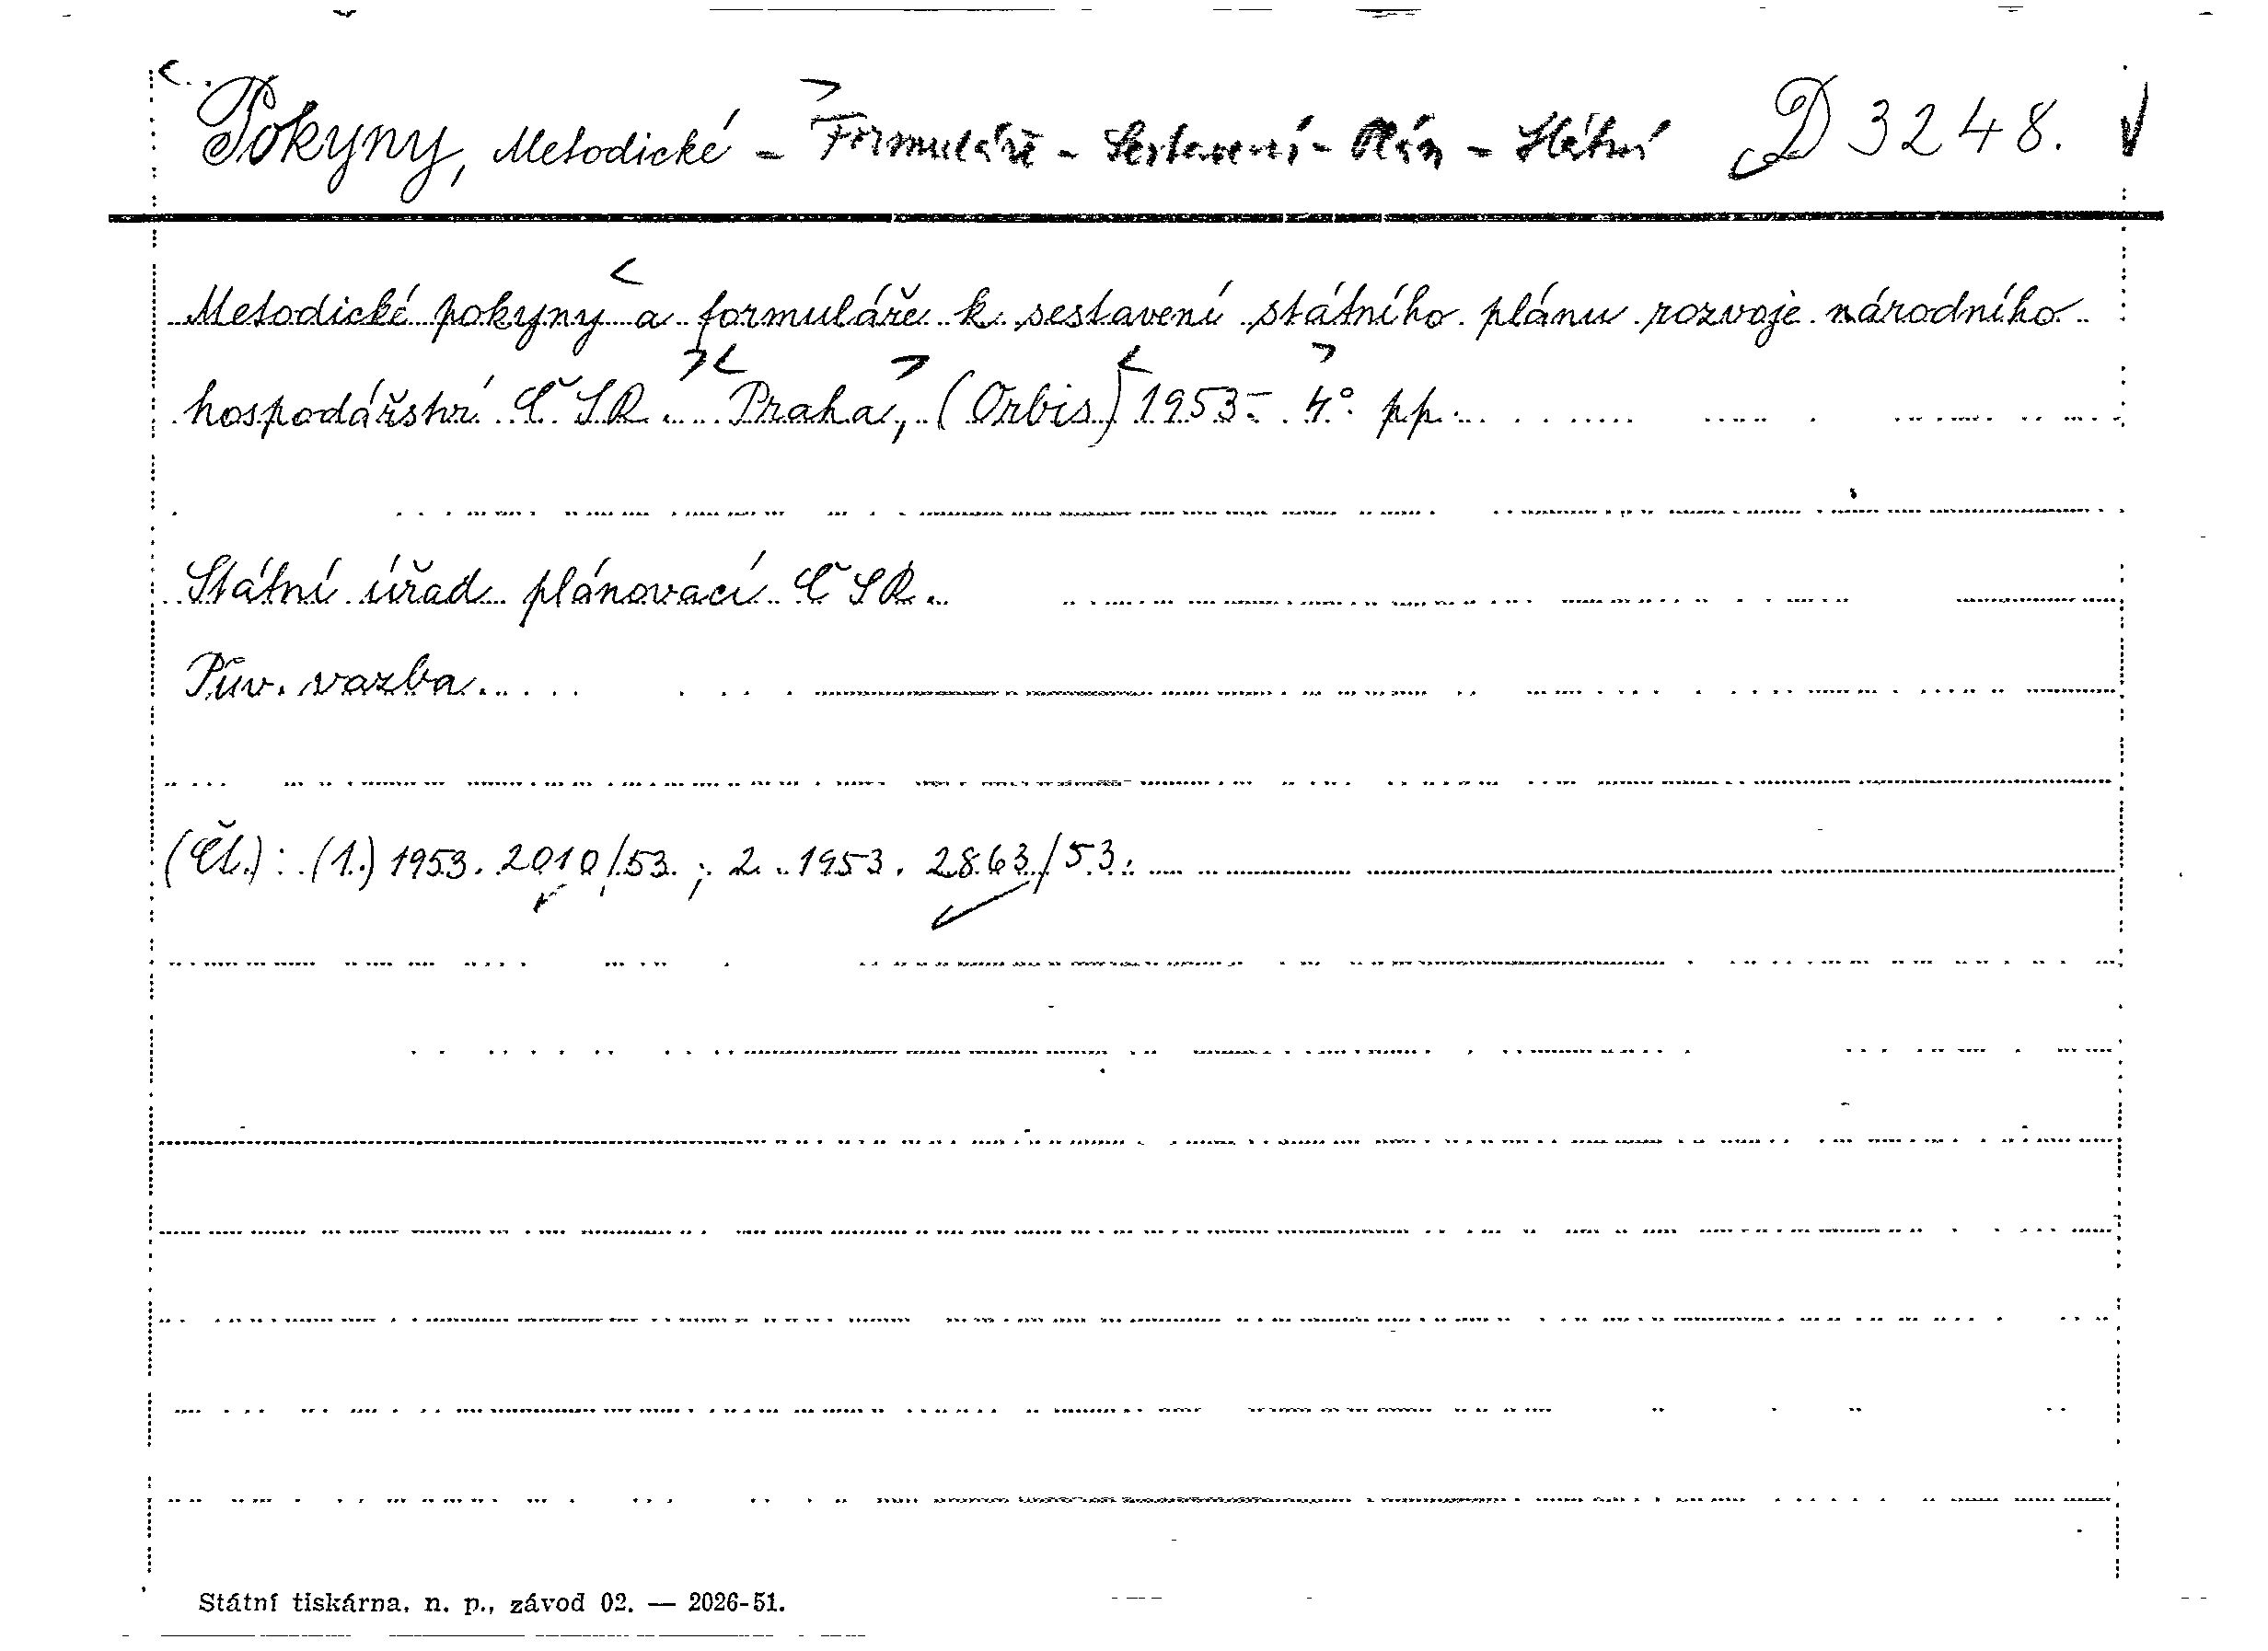 Pokyny, Metodické - Formuláře - Sestavení - Plán - Státní D 3248.
Metodické pokyny a formuláře k sestavení státního plánu rozvoje národního
hospodářství ČSR. Praha, (Orbis) 1953- 4° pp.
Státní úřad plánovací ČSR.
Pův. vazba.
(Čl.): (1.) 1953. 2010/53. ; 2. 1953. 2863/53.
Státní tiskárna, n. p., závod 02. — 2026-51.